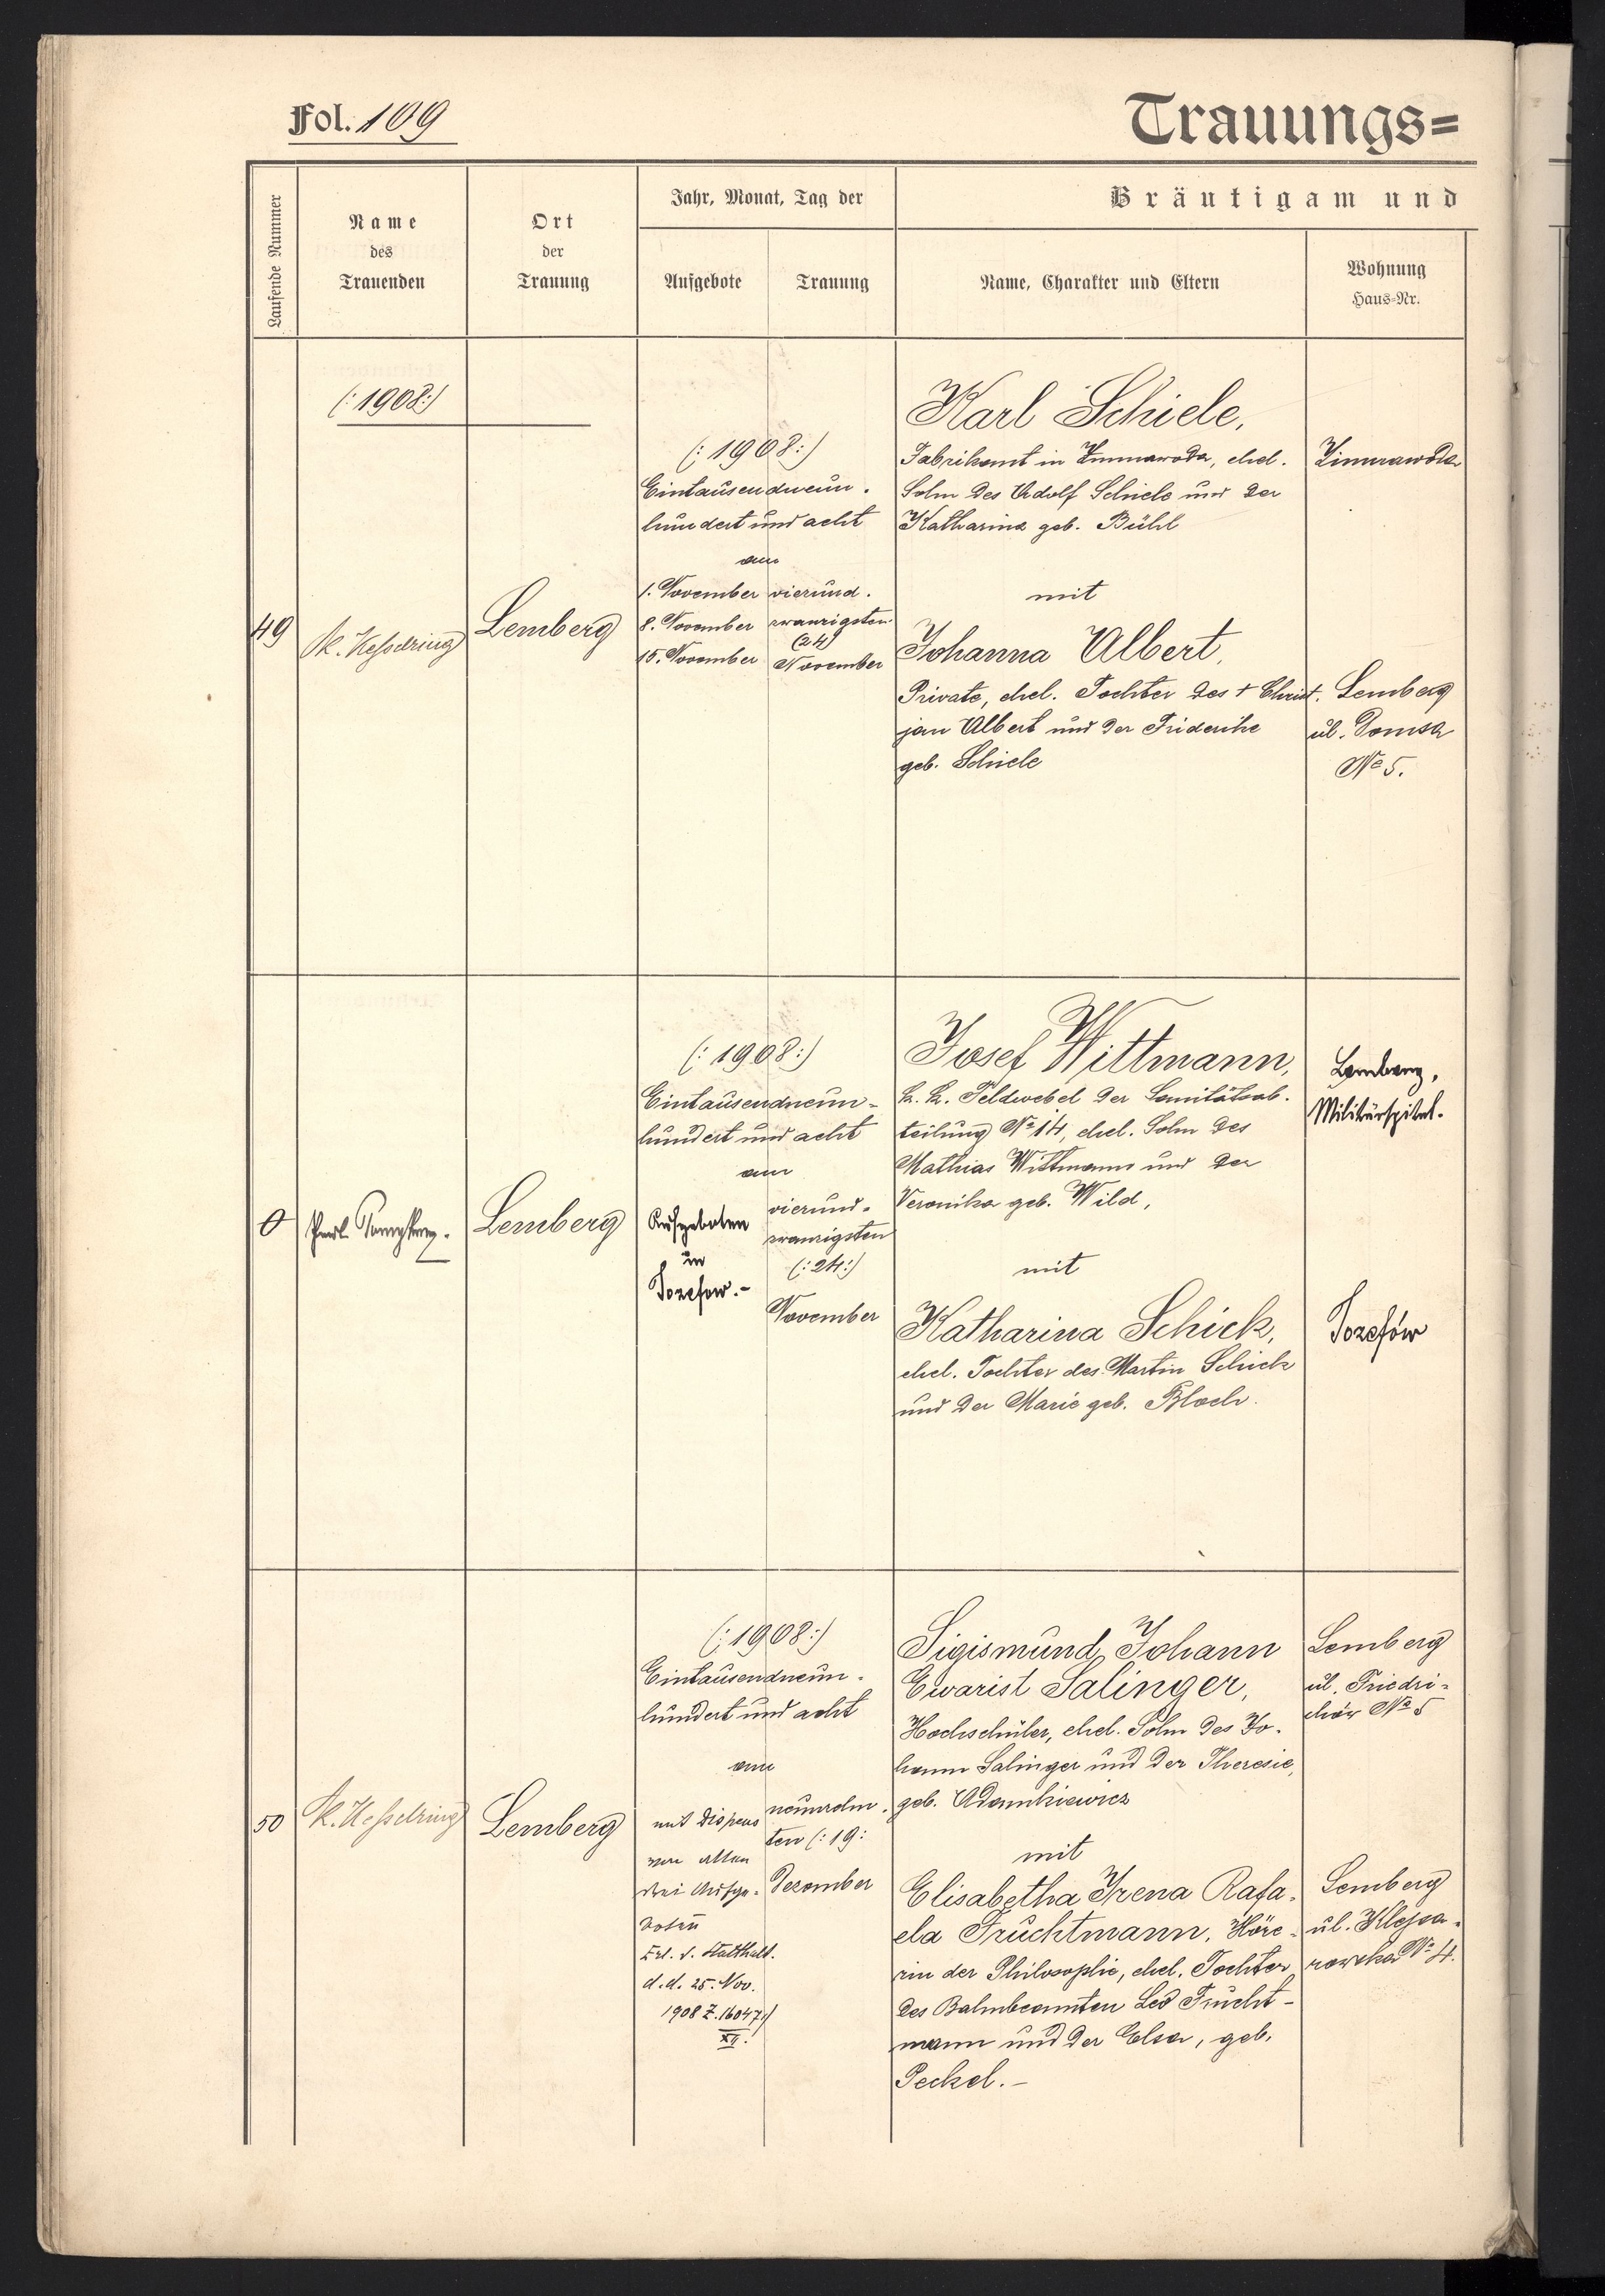 Fol. 109
Trauungs=
Laufende Nummer
Name
des
Trauenden
Ort
der
Trauung
Jahr, Monat, Tag der
Aufgebote
Trauung
Bräutigam und
Name, Charakter und Eltern
Wohnung
Haus-Nr.
(:1908:)
49
K. Kesselring
Lemberg
(:1908:)
Eintausendneun-
hundert und acht
am
1. November
8. November
15. November
vierund-
zwanzigsten
(24)
November
Karl Schiele,
Fabrikant in Zimnawoda, ehel.
Sohn des Adolf Schiele und der
Katharina geb. Bühl
mit
Johanna Albert,
Private, ehel. Tochter des + Christ-
jan Albert und der Friderike
geb. Schiele
Zimnawoda
Lemberg
ul.
№ 5.
0
Lemberg
(:1908:)
Eintausendneun-
hundert und acht
am
Aufgeboten
in
Josefow.-
vierund-
zwanzigsten
(:24:)
November
Josef Wittmann,
k. k. Feldwebel der Sanitätsab-
teilung № 14, ehel. Sohn des
Mathias Wittmann und der
Veronika geb. Wild,
mit
Katharina Schick,
ehel. Tochter des Martin Schick
und der Marie geb. Bloch.
Lemberg,
Militärspital.
Josefów
50
K. Kesselring
Lemberg
(:1908:)
Eintausendneun-
hundert und acht
am
mit Dispens
von allen
drei Aufge-
boten
Erl. d. Statthalt.
d.d. 25. Nov.
1908 Z. 16047/
XII.
neunzehn-
ten (:19:
Dezember
Sigismund Johann
Ewarist Salinger,
Hochschüler, ehel. Sohn des Jo-
hann Salinger und der Theresie,
geb. Adamkiewicz
mit
Elisabetha Irena Rafa-
ela Fruchtmann, Höre-
rin der Philosophie, ehel. Tochter
des Bahnbeamten Leo Frucht-
mann und der Elsa, geb.
Peckel.-
Lemberg
ul. Friedri-
chów № 5
Lemberg
ul. Klepa-
rowska № 4.